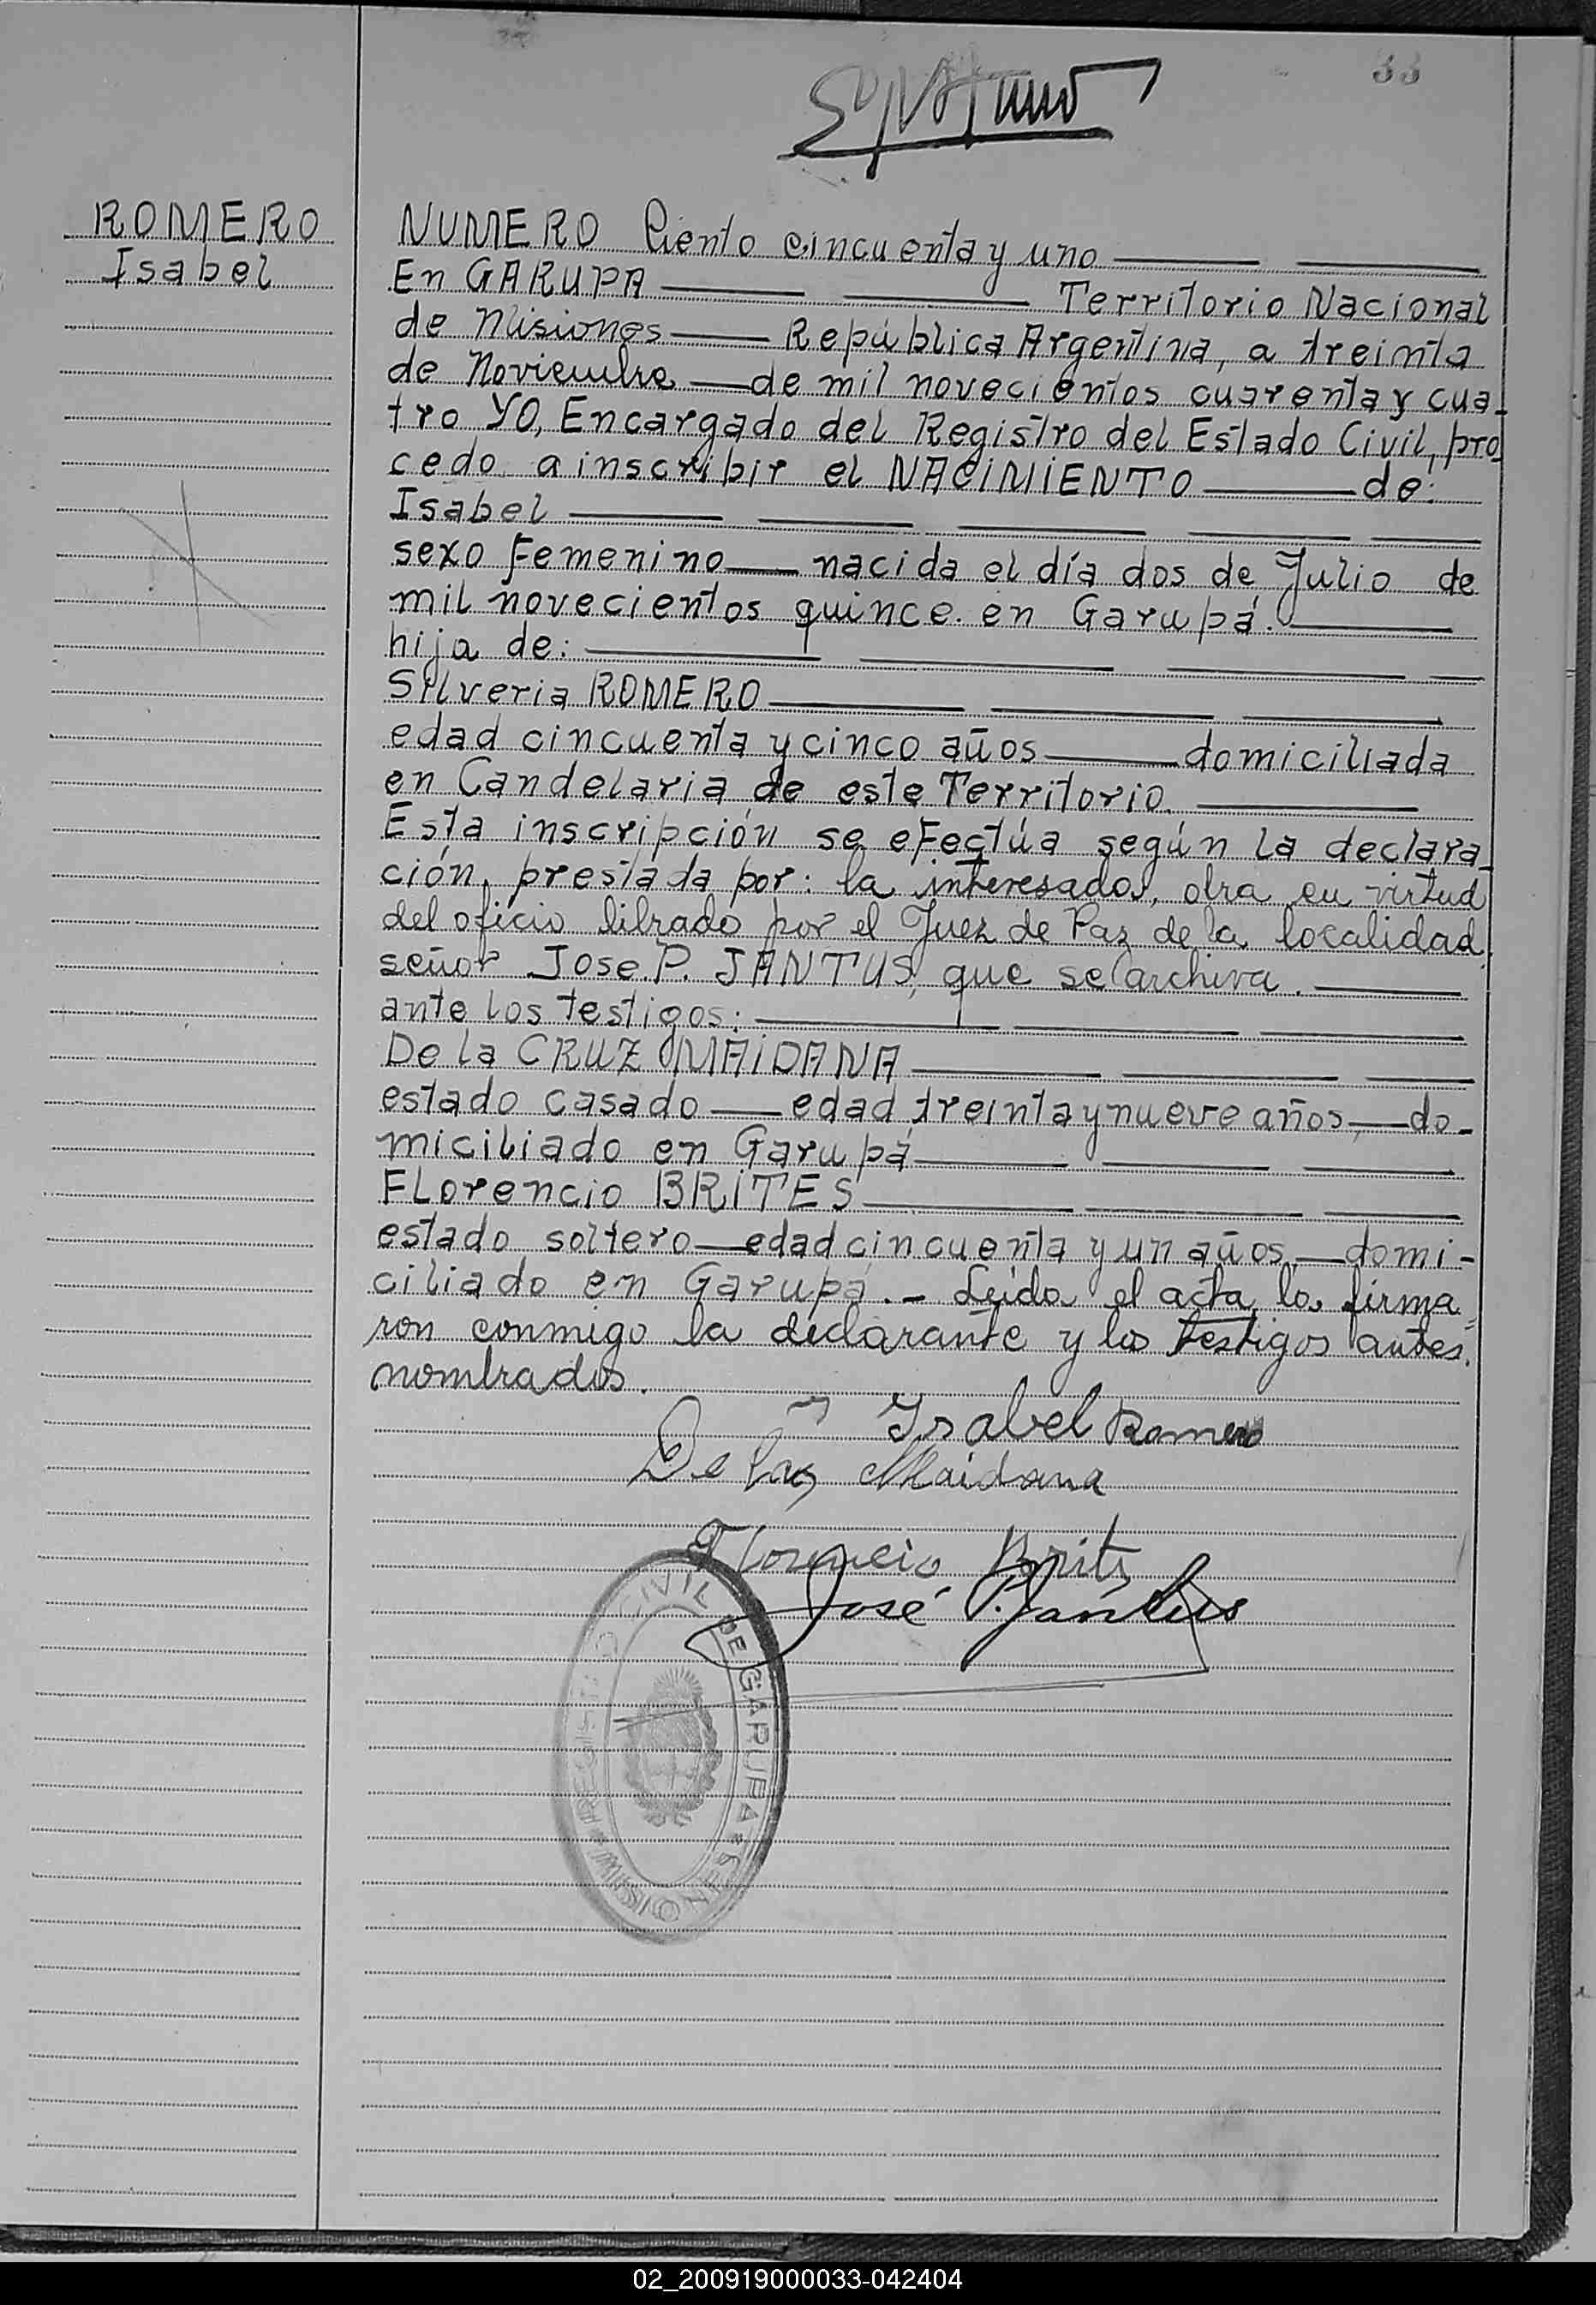 33
ROMERO
Isabel
NUMERO Ciento cincuenta y uno
En GARUPA Territorio Nacional
de Misiones República Argentina, a treinta
de Noviembre de mil novecientos cuarenta y cua-
tro YO, Encargado del Registro del Estado Civil, pro
cedo a inscribir el NACIMIENTO de:
Isabel
sexo Femenino nacida el día dos de Julio de
mil novecientos quince en Garupá.
hija de:
Silveria ROMERO
edad cincuenta y cinco años domiciliada
en Candelaria de este Territorio.
Esta inscripción se efectúa según la declara-
ción, prestada por: la interesada, obra en virtud
del oficio librado por el Juez de Paz de la localidad
señor Jose P. JANTUS, que se archiva.
ante los testigos:
De la CRUZ MAIDANA
estado casado edad treinta y nueve años, do-
miciliado en Garupá
FLorencio BRITES
estado soltero edad cincuenta y un años, domi-
ciliado en Garupá.- Leida el acta, la firma=
ron conmigo la declarante y los testigos antes
nombrados.
Isabel Romero
De la Maidana
Florencio Brites
José P. Jantus
REGISTRO CIVIL DE GARUPA * (MISIONES) *
02_200919000033-042404